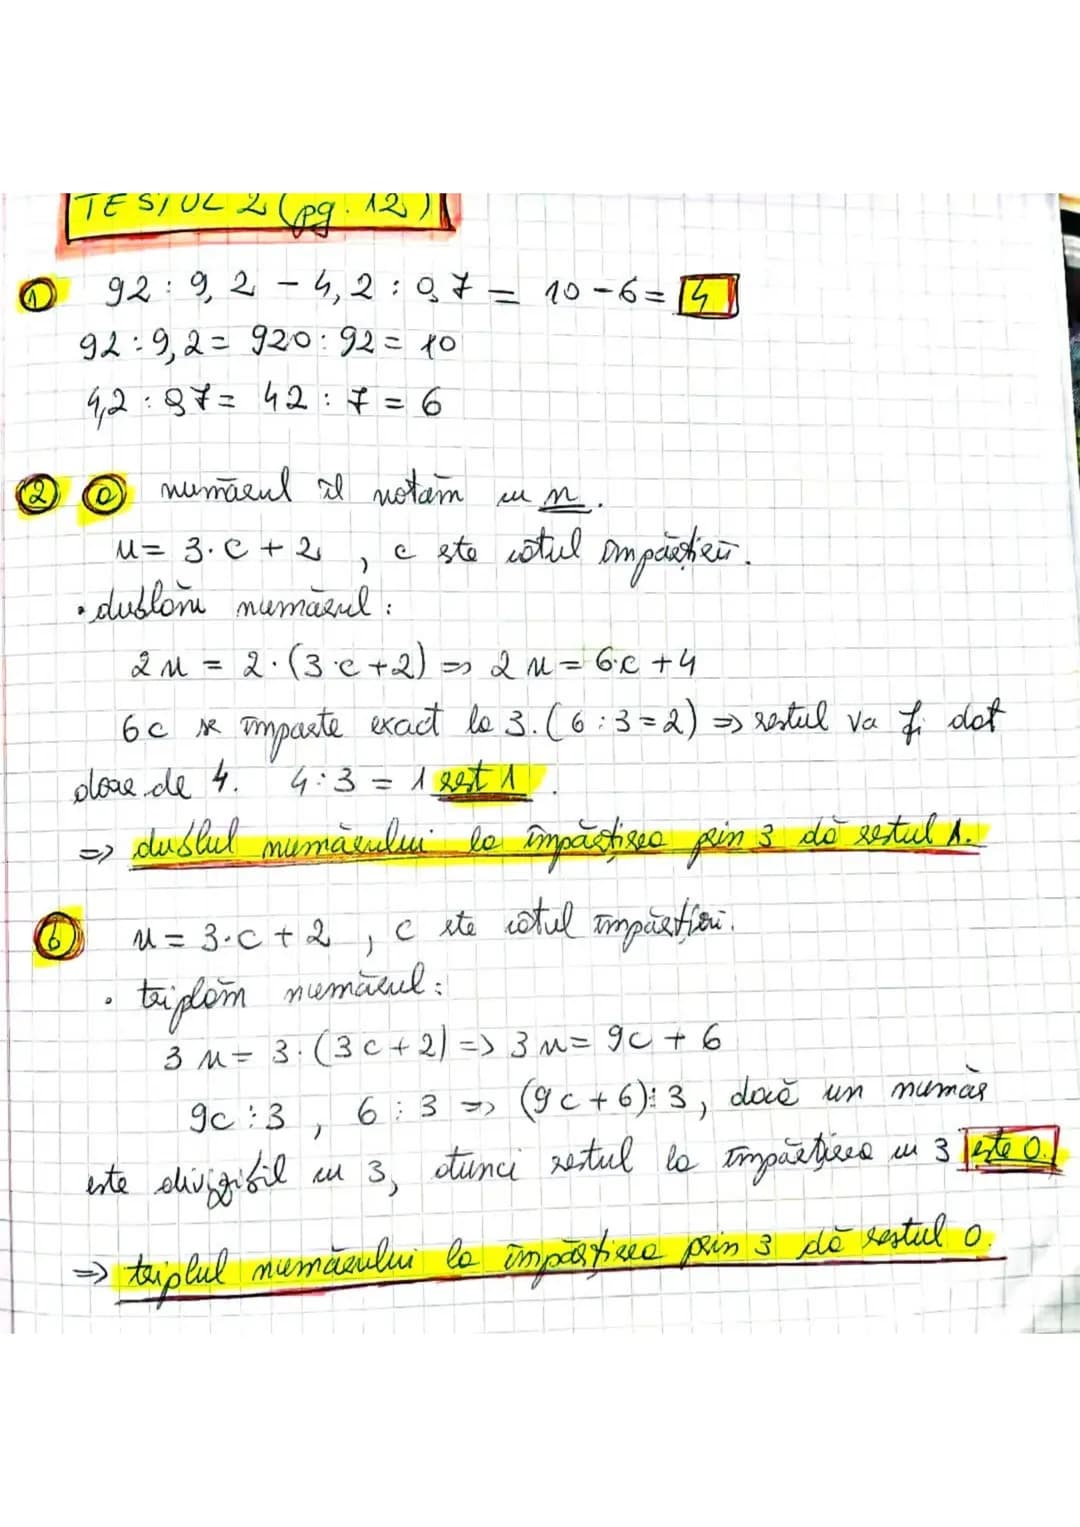 TESTUL 2 (pg. 12)
1 92 : 9,2 - 4,2 : 0,7 = 10 - 6 = 4
92 : 9,2 = 920 : 92 = 10
4,2 : 0,7 = 42 : 7 = 6
2 a numărul îl notăm cu n.
n = 3·c + 2, c este câtul împărțirii.
• dublăm numărul:
2n = 2·(3·c+2) => 2n = 6·c + 4
6c se împarte exact la 3. (6 : 3 = 2) => restul va fi dat
doar de 4. 4 : 3 = 1 rest 1.
=> dublul numărului la împărțirea prin 3 dă restul 1.
b n = 3·c + 2, c este câtul împărțirii.
• triplăm numărul:
3n = 3·(3c+2) => 3n = 9c + 6
9c ⋮ 3, 6 ⋮ 3 => (9c+6) ⋮ 3, dacă un număr
este divizibil cu 3, atunci restul la împărțirea cu 3 este 0.
=> triplul numărului la împărțirea prin 3 dă restul 0.